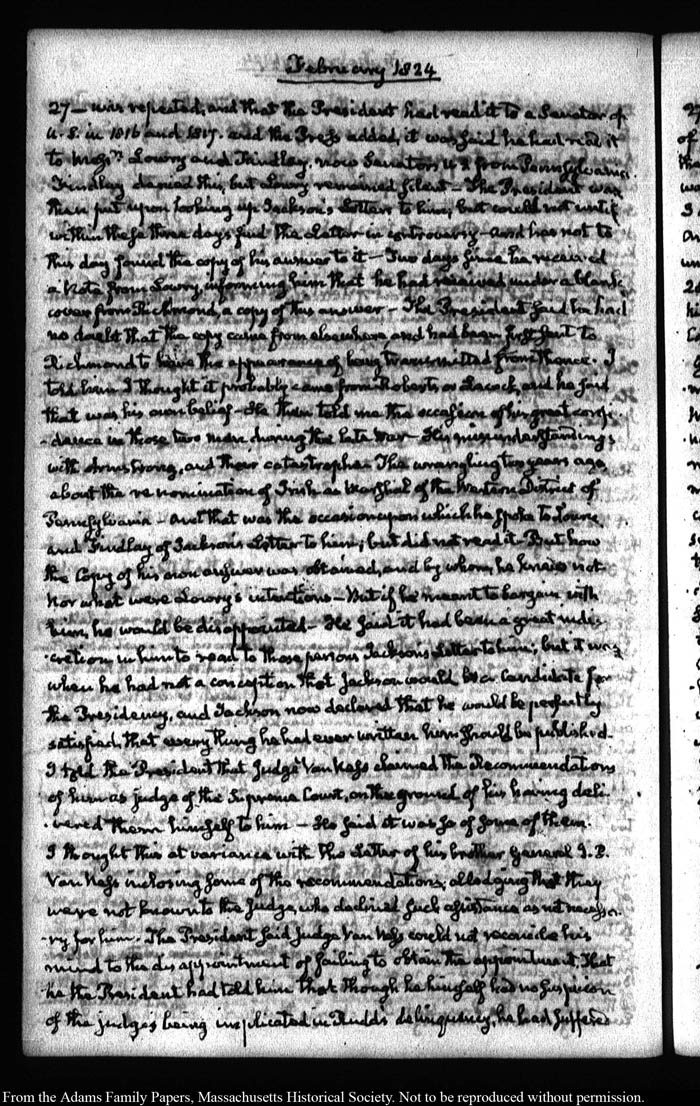 February 1824
27— was repeated, and that the President had read it to a Senator of
U.S. in 1816 and 1817. and the Press added, it was said he had read it
to Mess.rs Lowry and Findlay, now Senators U.S from Pennsylvania.
Findlay denied this, but Lowry remained silent— The President was
then put upon looking up Jackson's Letters to him, but could not until
within these three days find the Letter in controversy—and has not to
this day found the copy of his answer to it— Two days since he received
a Note from Lowry, informing him that he had received under a blank
cover from Richmond, a copy of this answer— The President said he had
no doubt that the copy came from elsewhere, and had been first sent to
Richmond to have the appearance of being transmitted from thence. I
told him I thought it probably came from Roberts or Lacock, and he said
that was his own belief— He then told me the occasion of his great confi-
-dence in those two men during the late War— His misunderstandings
with Armstrong, and their catastrophe. The wrangling two years ago,
about the re nomination of Irish as Marshal of the Western District of
Pennsylvania— And that was the occasion upon which he spoke to Lowrie
and Findlay of Jackson's Letter to him; but did not read it— But how
the Copy of his own answer was obtained, and by whom, he knows not.
Nor what were Lowry's intentions— But if he meant to bargain with
him, he would be disappointed— He said it had been a great indis-
-cretion in him to read to those persons Jackson's Letter to him; but it was
when he had not a conception that Jackson would be a Candidate for
the Presidency, and Jackson now declared that he would be perfectly
satisfied, that every thing he had ever written him should be published.
I told the President that Judge Van Ness claimed the Recommendations
of him as judge of the Supreme Court, on the ground of his having deli-
-vered them himself to him— He said it was so of some of them.
I thought this at variance with the Letter of his brother General J. P.
Van Ness inclosing some of the recommendations, alledging that they
were not known to the Judge, who declined such assistance as not necessa-
-ry for him. The President said Judge Van Ness could not reconcile his
mind to the disappointment of failing to obtain the appointment. That
he the President had told him that though he himself had no suspicion
of the judge's being implicated in Rudd's delinquency, he had suffered